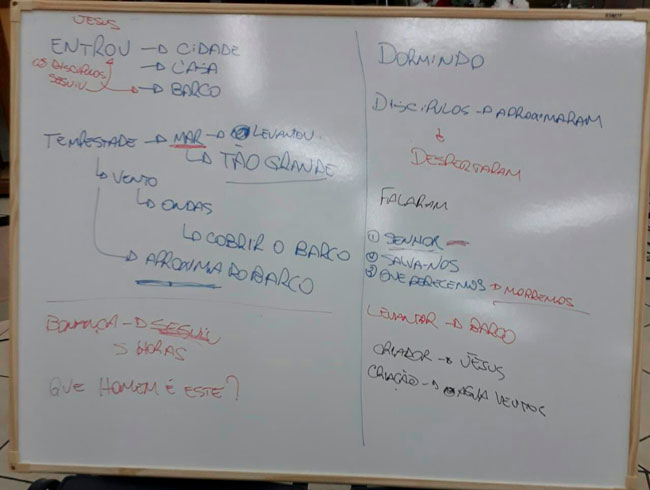 JESUS
ENTROU → CIDADE
→ CASA
OS DISCÍPULOS
SEGUIU → BARCO
TEMPESTADE → MAR → LEVANTOU
↳ TÃO GRANDE
↳ VENTO
↳ ONDAS
↳ COBRIR O BARCO
→ APROXIMA DO BARCO
BONANÇA → SEGUIU
HORAS
QUE HOMEM É ESTE?
DORMINDO
DISCIPULOS → APROXIMARAM
E
DESPERTARAM
FALARAM
① SENHOR
② SALVA-NOS
③ QUE PERECEMOS → MORREMOS
LEVANTAR → BARCO
CRIADOR → JESUS
CRIAÇÃO → AGUA VENTOS